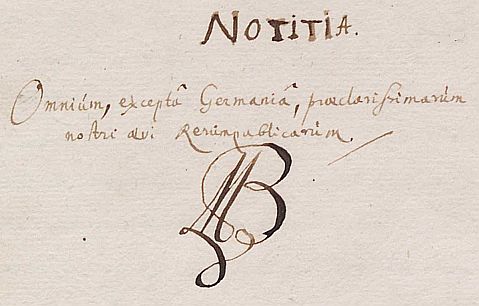 NOTITIA.
Omnium, exceptâ Germaniâ, præclarissimarum
nostri ævi Rerumpublicarum.